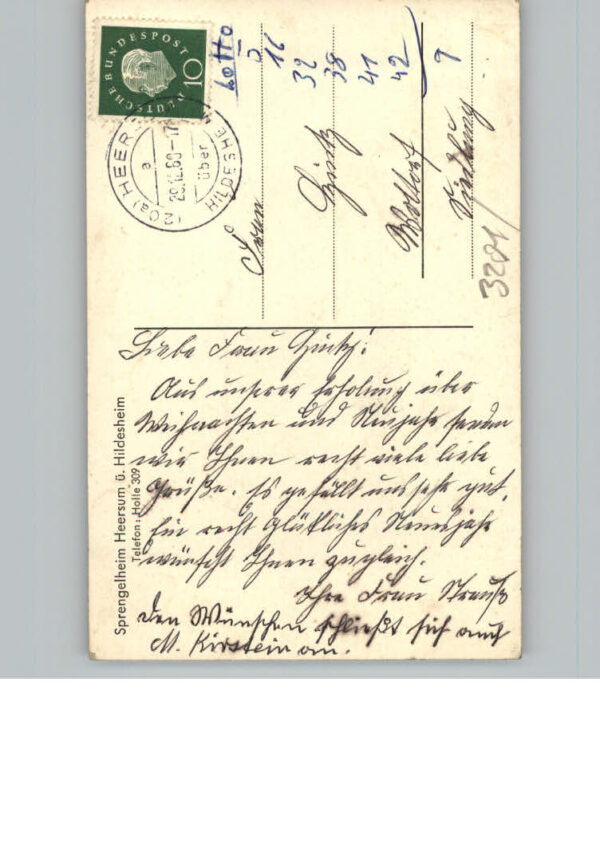 DEUTSCHE BUNDESPOST
10
(20a) HEER
über
HILDESHE
a
29.12.60-17
Lotto
5
16
32
38
41
42
9
Frau
Woltorf
Siedlung
3201/
Liebe Frau
Aus unserer Erholung über
Weihnachten und Neujahr senden
wir Ihnen recht viele liebe
Grüße. Es gefällt uns sehr gut.
Ein recht glückliches Neuesjahr
wünscht Ihnen zugleich.
Ihre Frau Strauß
Den Wünschen schließt sich auch
M. Kirstein an.
Sprengelheim Heersum ü. Hildesheim
Telefon: Holle 309